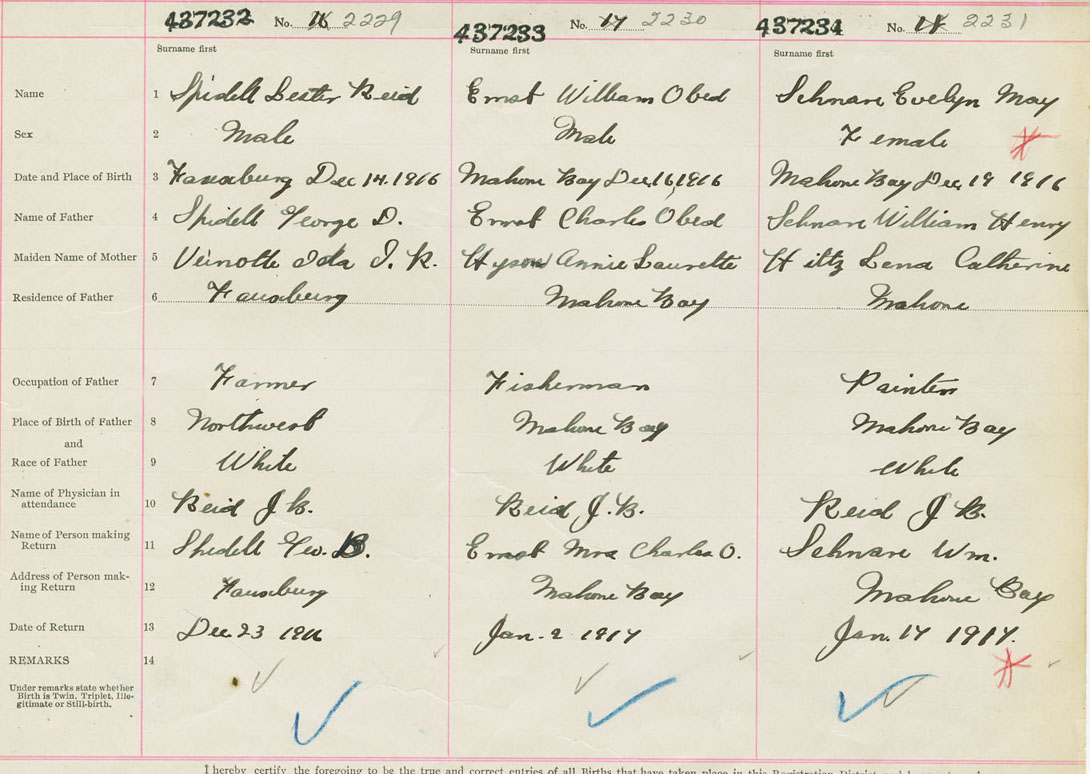 437232 No. 16 2229 437233 No. 17 2230 437234 No. 18 2231
Surname first Surname first Surname first
Name 1 Spidell Lester Reid Ernst William Obed Schnare Evelyn May
Sex 2 Male Male Female
Date and Place of Birth 3 Fauxburg Dec 14. 1916 Mahone Bay Dec, 16, 1916 Mahone Bay Dec, 19 1916
Name of Father 4 Spidell George D. Ernst Charles Obed Schnare William Henry
Maiden Name of Mother 5 Veinotte Ida I. K. Hyson Annie Laurette Hiltz Lena Catherine
Residence of Father 6 Fauxburg Mahone Bay Mahone
Occupation of Father 7 Farmer Fisherman Painter
Place of Birth of Father 8 Northwest Mahone Bay Mahone Bay
and
Race of Father 9 White White White
Name of Physician in
attendance 10 Reid J. B. Reid J. B. Reid J B.
Name of Person making
Return 11 Spidell Geo. D. Ernst Mrs Charles O. Schnare Wm.
Address of Person mak-
ing Return 12 Fauxburg Mahone Bay Mahone Bay
Date of Return 13 Dec. 23 1916 Jan. 2 1917 Jan. 17 1917.
REMARKS 14
Under remarks state whether
Birth is Twin, Triplet, Ille-
gitimate or Still-birth.
I hereby certify the foregoing to be the true and correct entries of all Births that have taken place in this Registration District